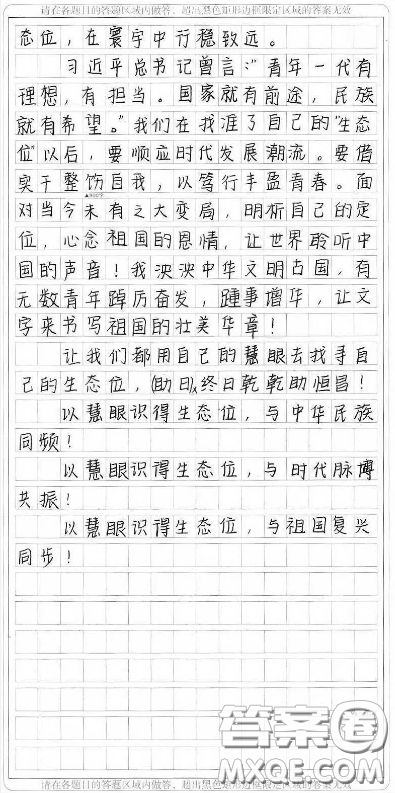 请在各题目的答题区域内做答，超出黑色矩形边框限定区域的答案无效
态位，在寰宇中行稳致远。
习近平总书记曾言：“青年一代有
理想，有担当。国家就有前途，民族
就有希望。”我们在找准了自己的“生态
位”以后，要顺应时代发展潮流。要借
实干整饬自我，以笃行丰盈青春。面
对当今未有之大变局，明析自己的定
位，心念祖国的恩情，让世界聆听中
国的声音！我泱泱中华文明古国，有
无数青年踔厉奋发，踵事增华，让文
字来书写祖国的壮美华章！
让我们都用自己的慧眼去找寻自
己的生态位，(助日)终日乾乾助恒昌！
以慧眼识得生态位，与中华民族
同频！
以慧眼识得生态位，与时代脉搏
共振！
以慧眼识得生态位，与祖国复兴
同步！
答案圈
MXQE.COM
请在各题目的答题区域内做答，超出黑色矩形边框限定区域的答案无效